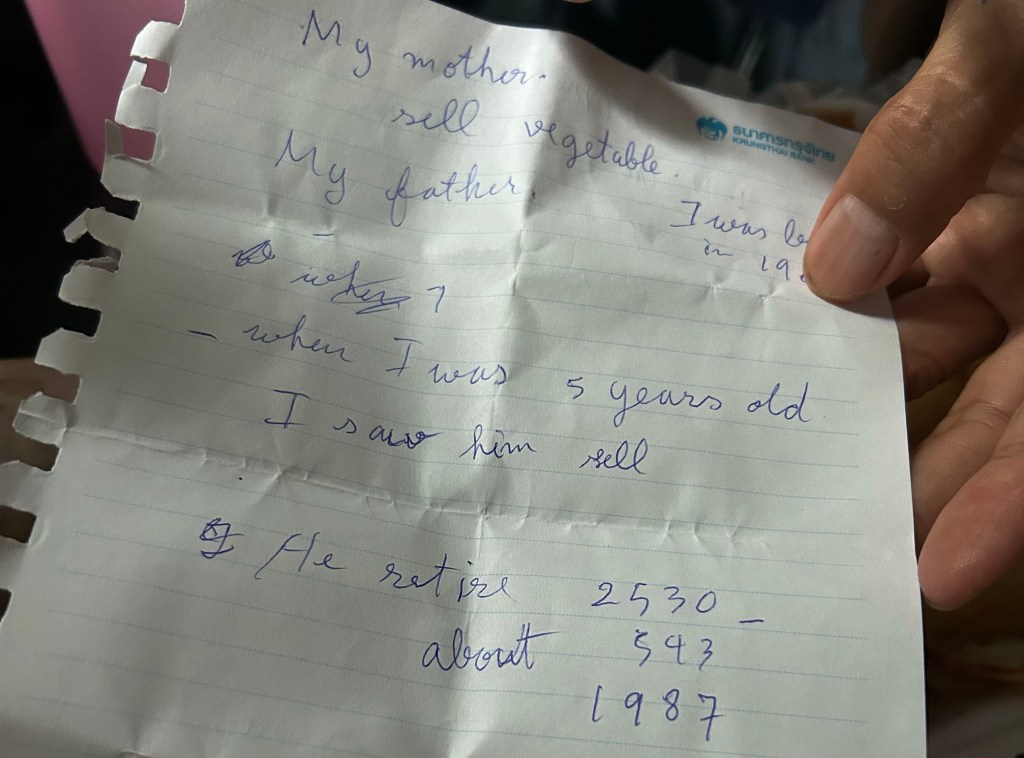 My mother.
sell vegetable.
ธนาคารกรุงไทย
KRUNGTHAI BANK
My father.
I was
in 19
when ?
- when I was 5 years old
I saw him sell
He retire 2530 -
about 543
1987